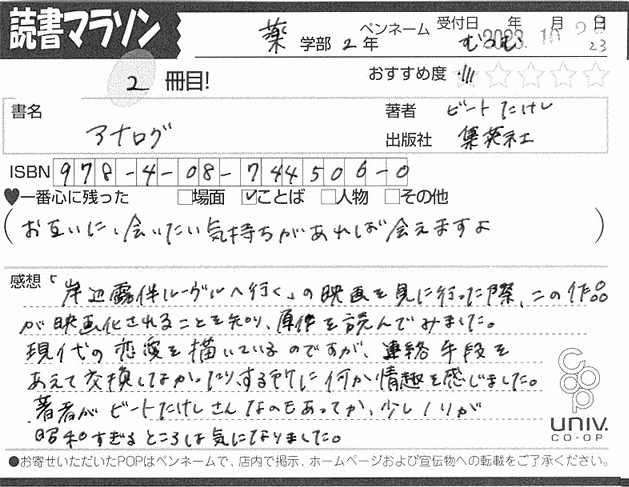 読書マラソン
薬 学部 2 年 ペンネーム むつむ 受付日 年 月 日
2 冊目!
おすすめ度
書名 アナログ
著者 ビートたけし
出版社 集英社
ISBN 978-4-08-744506-0
♥一番心に残った □場面 ☑ことば □人物 □その他
(お互いに、会いたい気持ちがあれば会えますよ)
感想 「岸辺露伴ルーヴルへ行く」の映画を見に行った際、この作品
が映画化されることを知り、原作を読んでみました。
現代の恋愛を描いているのですが、連絡手段を
あえて交換しなかったりする所に何か情趣を感じました。
著者がビートたけしさんなのもあってか、少しノリが
昭和すぎるところは気になりました。
coop
UNIV.
CO-OP
●お寄せいただいたPOPはペンネームで、店内で掲示、ホームページおよび宣伝物への転載をご了承ください。